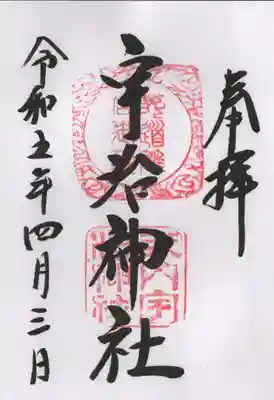 奉拝
宇治神社
令和五年四月三日